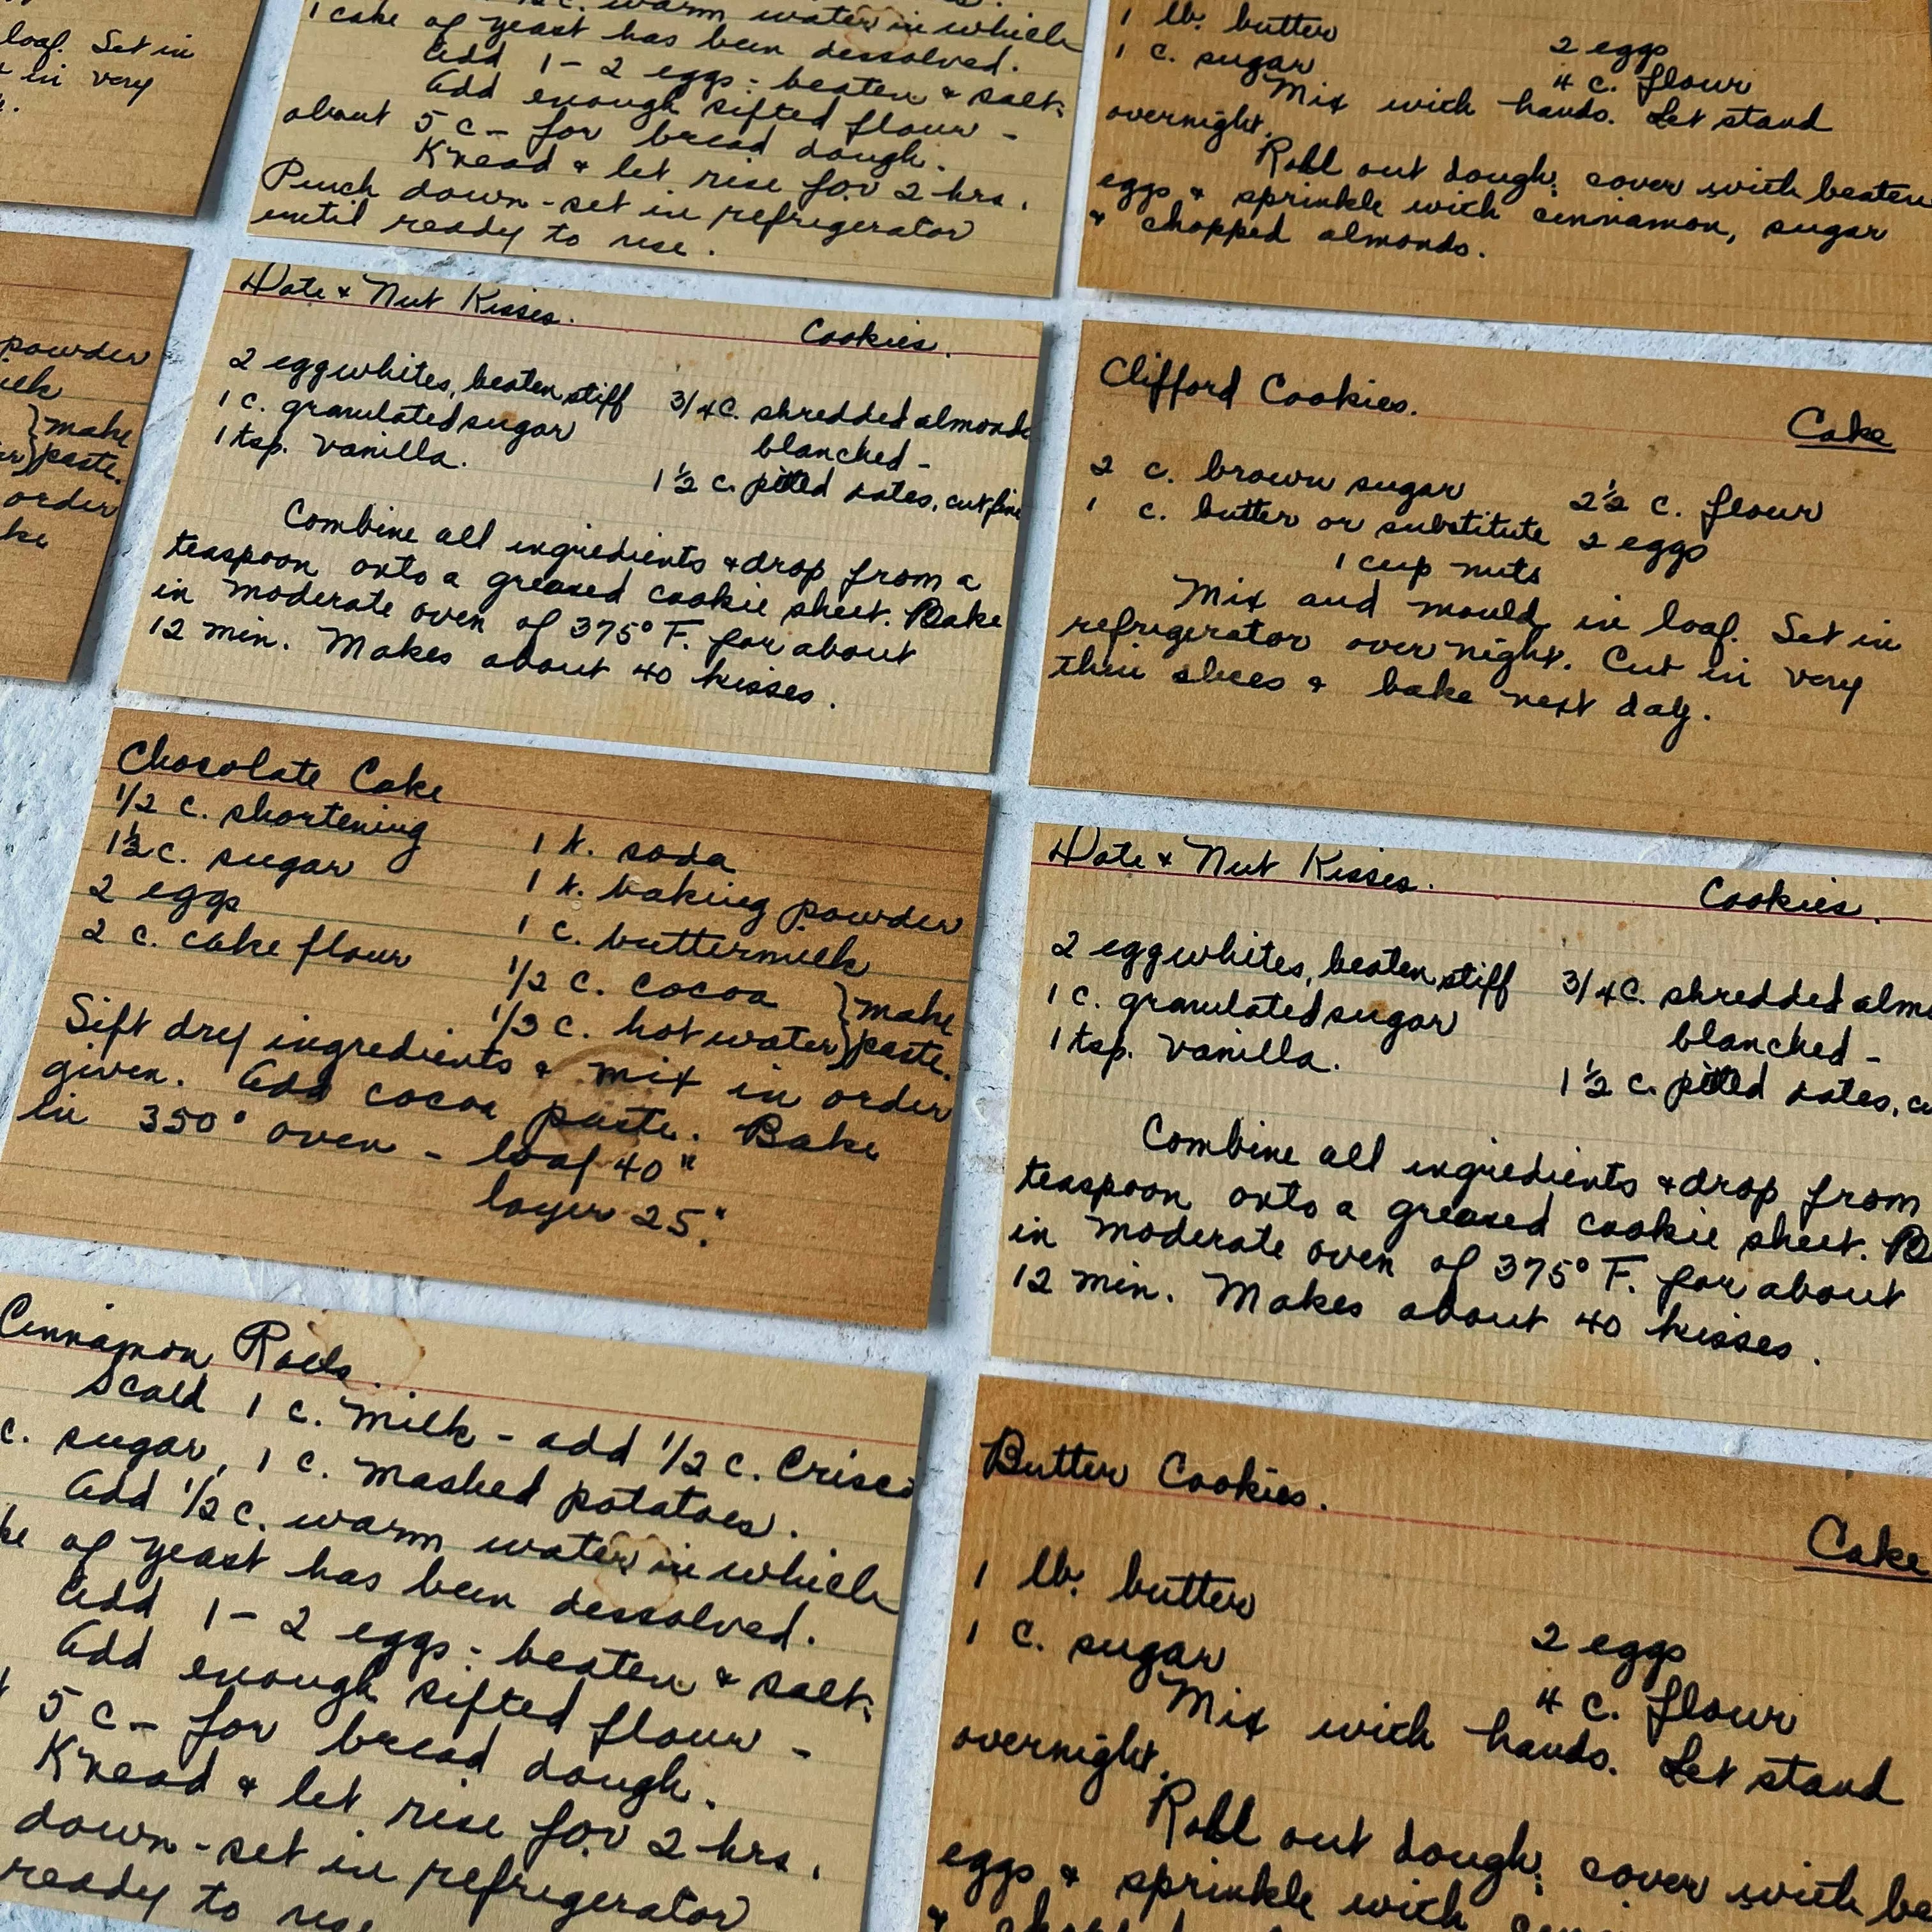 loaf. Set in
in very
powder
make
paste.
order
1/2 c. warm water in which
1 cake of yeast has been dessolved.
Add 1 - 2 eggs - beaten & salt.
Add enough sifted flour -
about 5 c - for bread dough.
Knead & let rise for 2 hrs.
Punch down - set in refrigerator
until ready to use.
1 lb. butter
1 c. sugar 2 eggs
4 c. flour
Mix with hands. Let stand
overnight.
Roll out dough; cover with beaten
eggs & sprinkle with cinnamon, sugar
& chopped almonds.
Date & Nut Kisses.
Cookies.
2 eggwhites, beaten stiff 3/4 c. shredded almonds
1 c. granulated sugar blanched -
1 tsp. vanilla. 1 1/2 c. pitted dates, cut fine
Combine all ingredients & drop from a
teaspoon onto a greased cookie sheet. Bake
in moderate oven of 375° F. for about
12 min. Makes about 40 kisses.
Clifford Cookies.
Cake
2 c. brown sugar 2 1/2 c. flour
1 c. butter or substitute 2 eggs
1 cup nuts
Mix and mould in loaf. Set in
refrigerator over night. Cut in very
thin slices & bake next day.
Chocolate Cake
1/2 c. shortening 1 t. soda
1 1/2 c. sugar 1 t. baking powder
2 eggs 1 c. buttermilk
2 c. cake flour 1/2 c. cocoa } make
1/3 c. hot water } paste.
Sift dry ingredients & mix in order
given. Add cocoa paste. Bake
in 350° oven - loaf 40"
layer 25".
Date & Nut Kisses.
Cookies.
2 eggwhites, beaten stiff 3/4 c. shredded alm
1 c. granulated sugar blanched -
1 tsp. vanilla. 1 1/2 c. pitted dates, cu
Combine all ingredients & drop from
teaspoon onto a greased cookie sheet. B
in moderate oven of 375° F. for about
12 min. Makes about 40 kisses.
Cinnamon Rolls.
Scald 1 c. milk - add 1/2 c. Crisco
c. sugar, 1 c. mashed potatoes.
Add 1/2 c. warm water in which
ke of yeast has been dessolved.
Add 1 - 2 eggs - beaten & salt.
Add enough sifted flour -
5 c - for bread dough.
Knead & let rise for 2 hrs.
down - set in refrigerator
ready to use
Butter Cookies.
Cake
1 lb. butter
1 c. sugar 2 eggs
4 c. flour
Mix with hands. Let stand
overnight.
Roll out dough; cover with be
eggs & sprinkle with
&